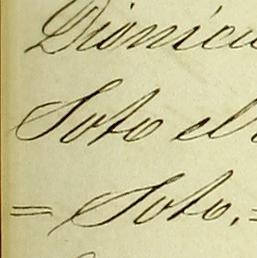 Dionicio
Soto el
= Soto. =